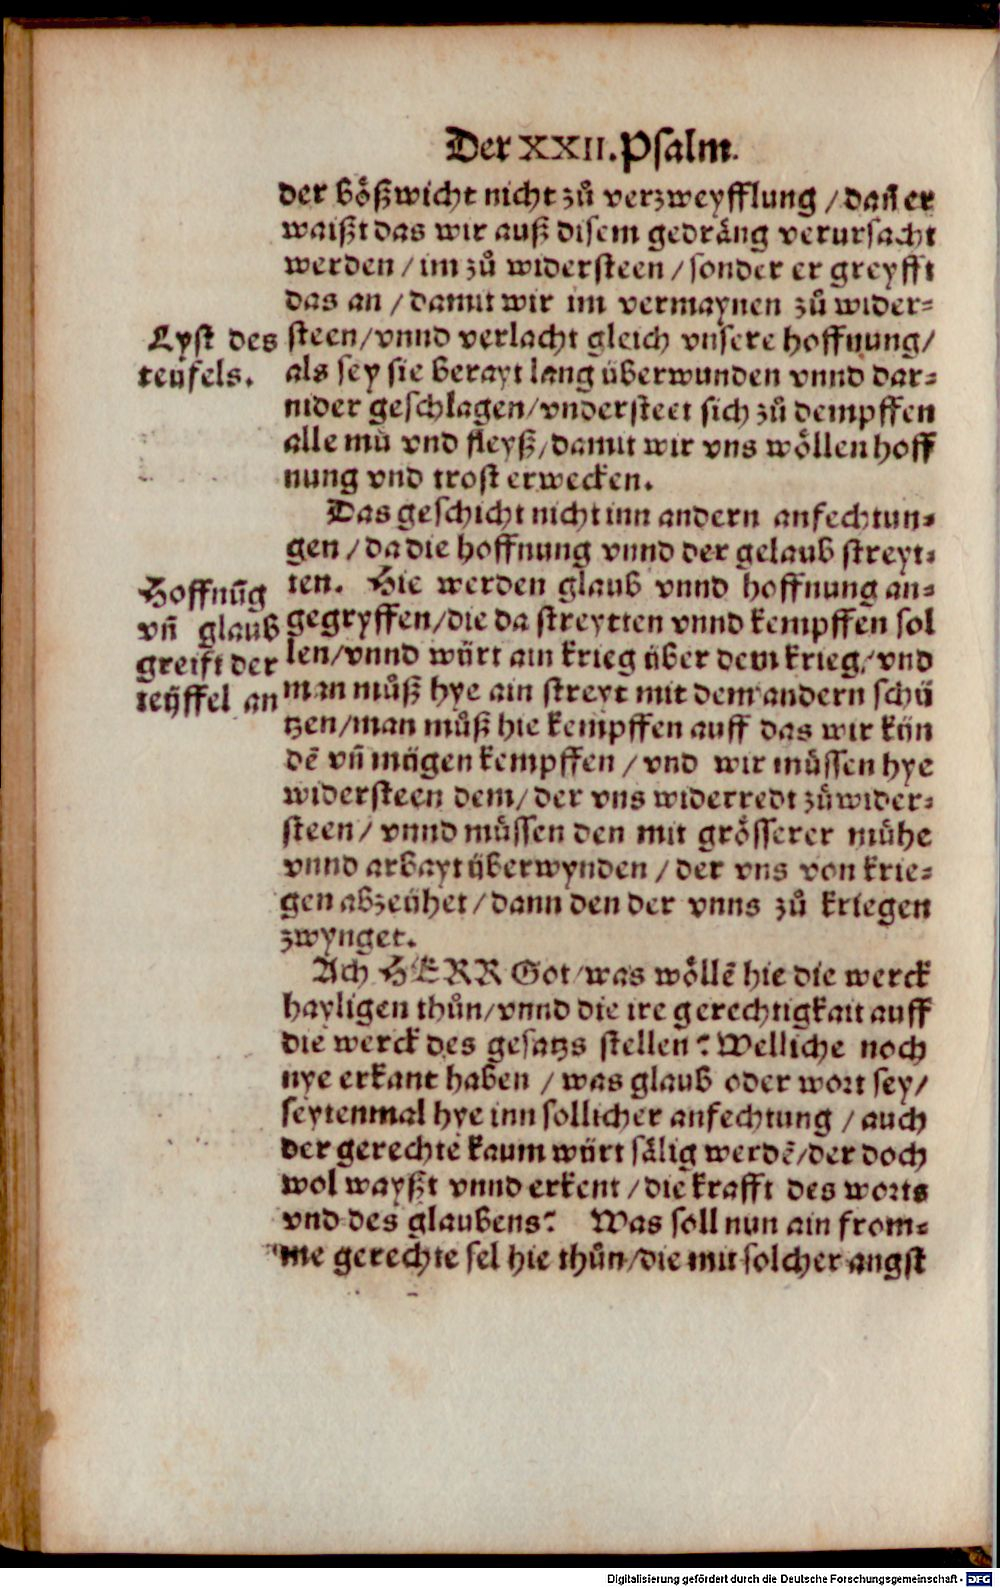 Der XXII. Psalm.
der bößwicht nicht zů verzweyfflung / dañ er
waißt das wir auß disem gedräng verursacht
werden / im zů widersteen / sonder er greyfft
das an / damit wir im vermaynen zů wider⸗
Lyst des
teüfels.
steen / vnnd verlacht gleich vnsere hoffnung /
als sey sie berayt lang überwunden vnnd dar⸗
nider geschlagen / vndersteet sich zů dempffen
alle mü vnd fleyß / damit wir vns wöllen hoff
nung vnd trost erwecken.
Das geschicht nicht inn andern anfechtun⸗
gen / da die hoffnung vnnd der gelaub streyt⸗
Hoffnũg
vñ glaub
greift der
teÿffel an
ten. Hie werden glaub vnnd hoffnung an⸗
gegryffen / die da streytten vnnd kempffen sol
len / vnnd würt ain krieg über dem krieg / vnd
man můß hye ain streyt mit dem andern schü
tzen / man můß hie kempffen auff das wir kün
dẽ vñ mügen kempffen / vnd wir müssen hye
widersteen dem / der vns widerredt zůwider⸗
steen / vnnd müssen den mit grösserer mühe
vnnd arbayt überwynden / der vns von krie⸗
gen abzeühet / dann den der vnns zů kriegen
zwynget.
Ach HERR Got / was wöllẽ hie die werck
hayligen thůn / vnnd die ire gerechtigkait auff
die werck des gesatzs stellen? Welliche noch
nye erkant haben / was glaub oder wort sey /
seytenmal hye inn sollicher anfechtung / auch
der gerechte kaum würt sälig werdẽ / der doch
wol wayßt vnnd erkent / die krafft des worts
vnd des glaubens? Was soll nun ain from⸗
me gerechte sel hie thůn / die mit solcher angst
Digitalisierung gefördert durch die Deutsche Forschungsgemeinschaft - DFG